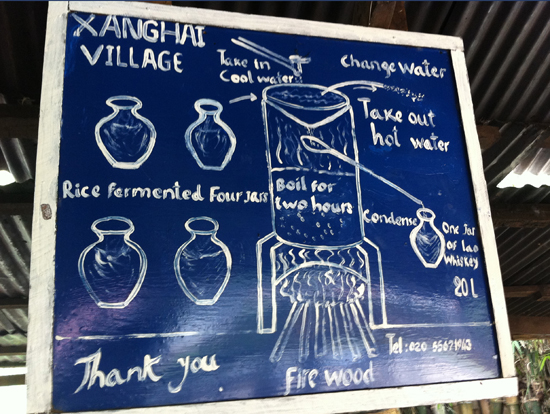 XANGHAI
VILLAGE
Take in
Cool water
Change water
Take out
hot water
Rice fermented Four jars
Boil for
two hours
Condense
One Jar
of Lao
Whiskey
20 L
Tel: 020 55671963
Thank you
fire wood